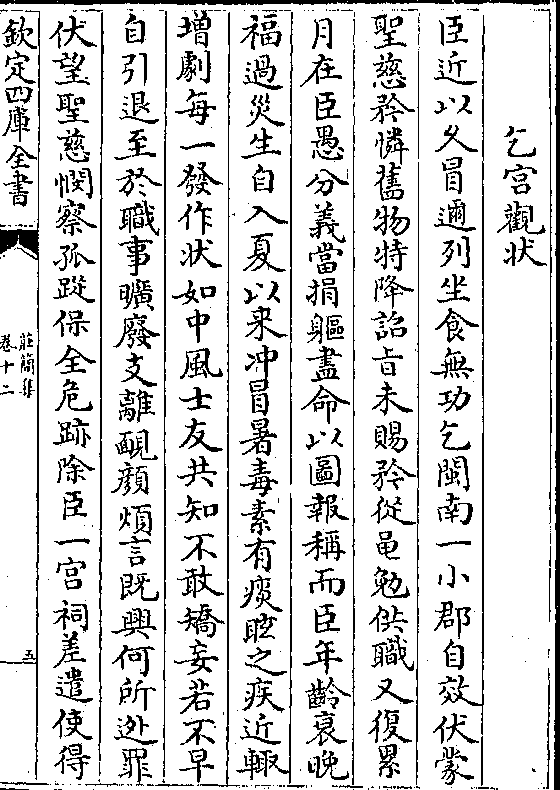 乞宫觀狀
臣近以久冒邇列坐食無功乞閩南一小郡自效伏蒙
聖慈矜憐舊物特降詔旨未賜矜從黽勉供職又復累
月在臣愚分義當捐軀盡命以圖報稱而臣年齡衰晚
福過災生自入夏以来冲冒暑毒素有痰眩之疾近輙
增劇每一發作狀如中風士友共知不敢矯妄若不早
自引退至於職事曠廢支離靦顔煩言既興何所逃罪
伏望聖慈憫察孤蹤保全危跡除臣一宫祠差遣使得
欽定四庫全書
莊簡集
卷十二
五